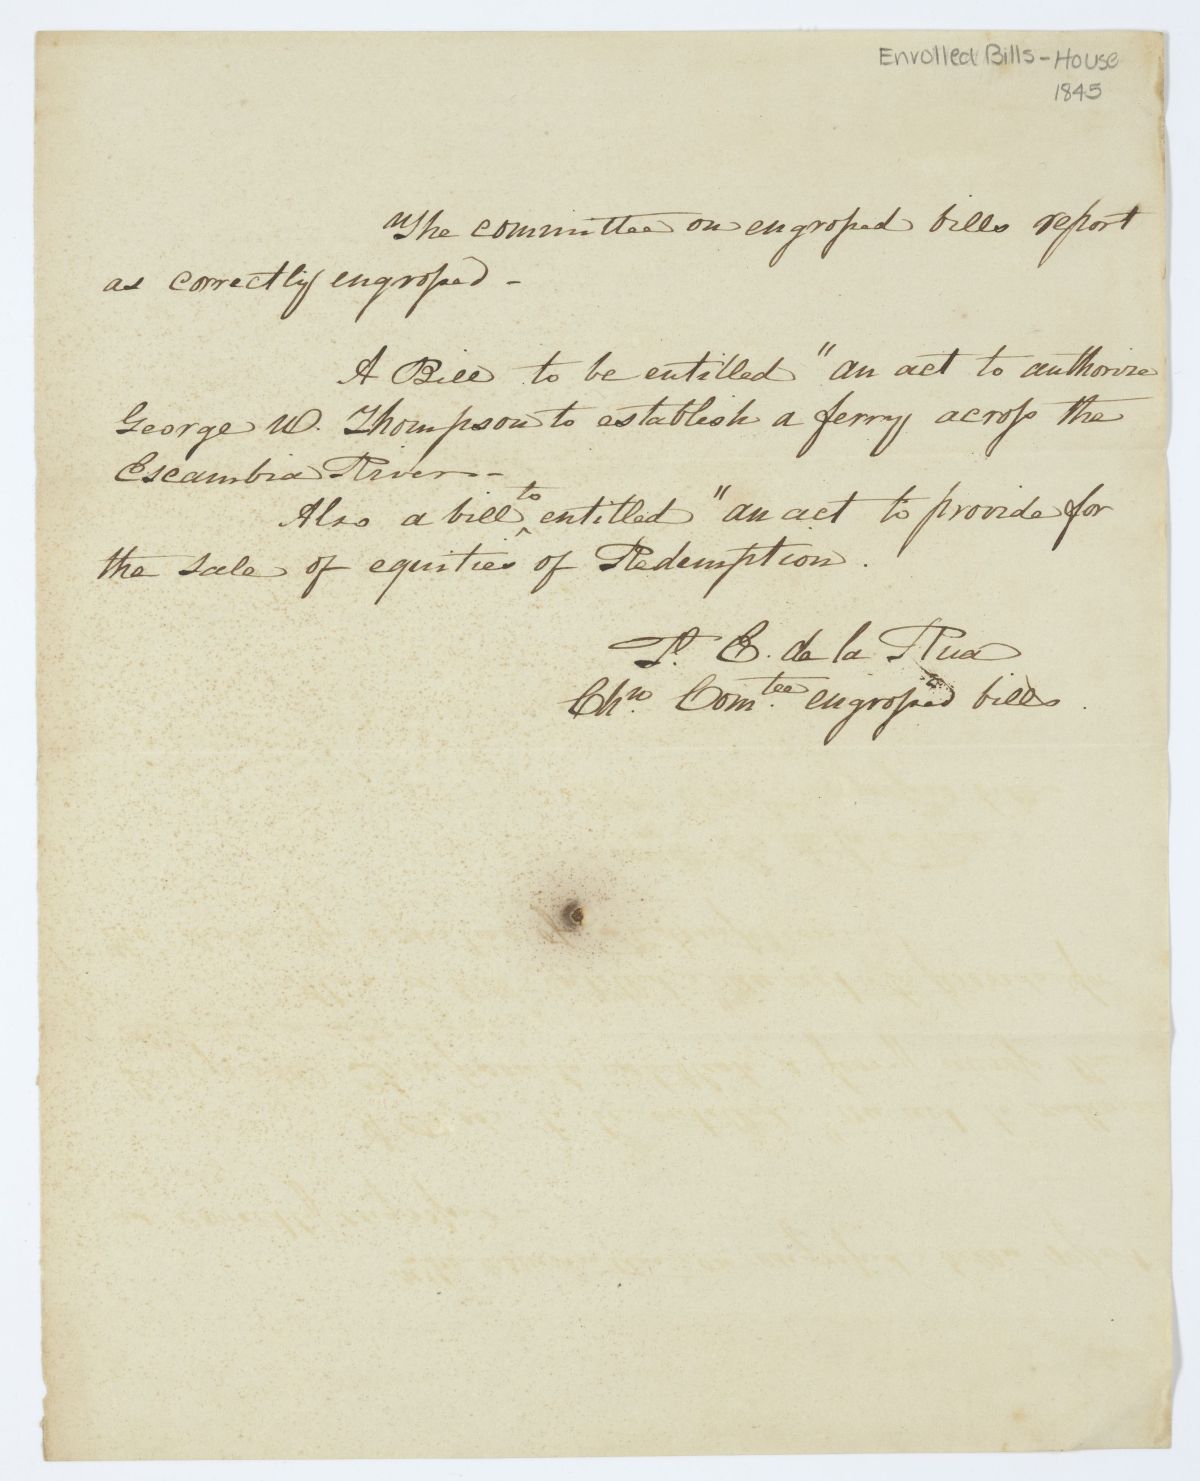 Enrolled Bills - House
1845
"The committee on engrossed bills report
as correctly engrossed -
A Bill to be entitled "an act to authorize
George W. Thompson to establish a ferry across the
Escambia River -
Also a bill to entitled "an act to provide for
the sale of equities of Redemption.
F. E. de la Rua
Chn. Comtee. engrossed bills.